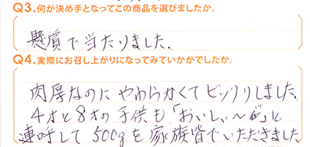 Q3.何が決め手となってこの商品を選びましたか。
懸賞で当たりました。
Q4.実際にお召し上がりになってみていかがでしたか。
肉厚なのにやわらかくてビックリしました。
4才と8才の子供も「おいしい〜が」と
連呼して500gを家族皆でいただきました